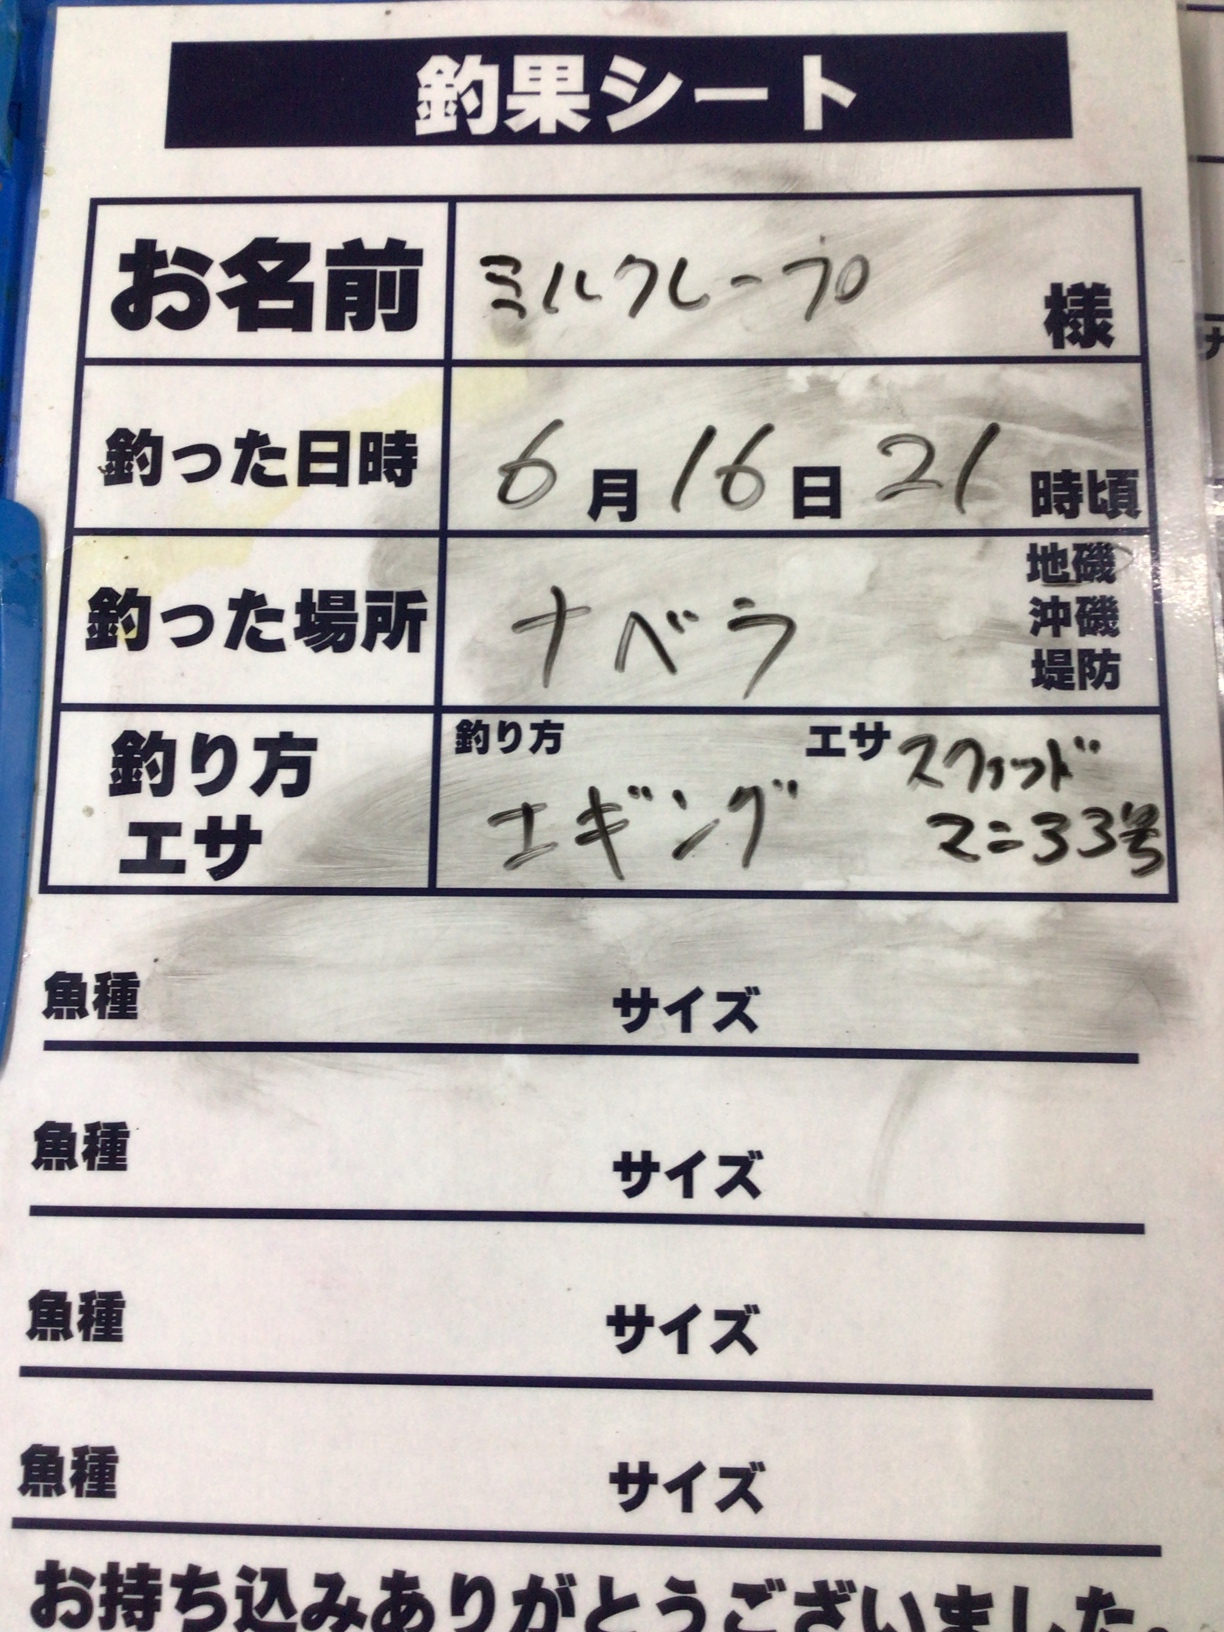 釣果シート
お名前 ミルクレープ 様
釣った日時 6月16日21時頃
釣った場所 ナベラ 地磯
沖磯
堤防
釣り方 釣り方 エサ スクィッド
エサ エギング マニ33号
魚種 サイズ
魚種 サイズ
魚種 サイズ
魚種 サイズ
お持ち込みありがとうございました。